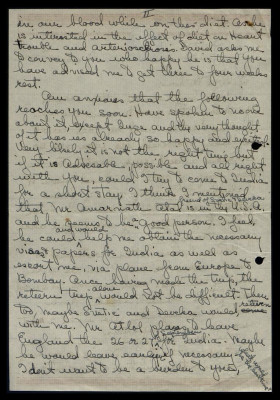 II
in our blood while on this diet. As he
is interested in the effect of diet on Heart
trouble and arteriosclerosis. David asks me
to convey to you who happy he is that you
have advised me to get three to four weeks
rest.
Am anxious that the following
reaches you soon. Have spoken to no one
about it except Inge and the very thought
of it has us already so happy and excited.
Very likely it is not the right time but
if it is Adviseable, possible and all right
with you, could I try to come to India
for a short stay. I think I mentioned
that Mr Amarnath Atal is in the U.S.A.
and he seems to be a good person. I feel
and would
he could help me obtain the necessary
visas papers, for India as well as
escort me, via plane from Europe to
Bombay. Once having made the trip, the
alone
return trip would not be difficult. Then
too, maybe and would return
with me. Mr Atal plans to leave
England the 26 or 27 for India. Maybe
he would leave earlier if necessary
I don't want to be a burden to you,